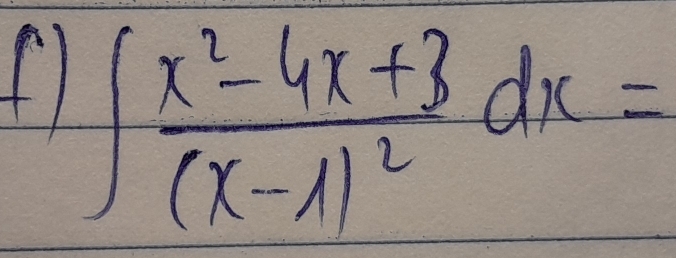 f) ∫ (x² - 4x + 3)/((x - 1)²) dx =